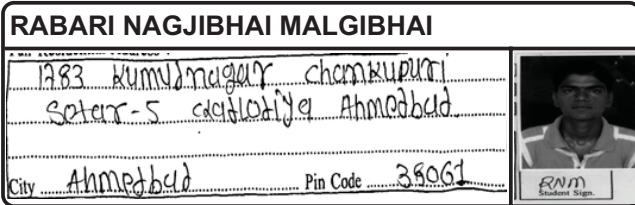 RABARI NAGJIBHAI MALGIBHAI
1783 kumudnagar chankupuri
Setar-5 Ahmedbad
City Ahmedbad Pin Code 38061
RNM
Student Sign.